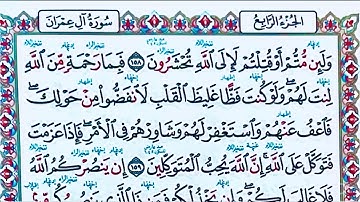 الجزء الرابع سورة آل عمران
وَلَئِن مُّتُّمْ أَوْ قُتِلْتُمْ لَإِلَى اللَّهِ تُحْشَرُونَ ١٥٨ فَبِمَا رَحْمَةٍ مِّنَ اللَّهِ
لِنتَ لَهُمْ وَلَوْ كُنتَ فَظًّا غَلِيظَ الْقَلْبِ لَانفَضُّوا مِنْ حَوْلِكَ
فَاعْفُ عَنْهُمْ وَاسْتَغْفِرْ لَهُمْ وَشَاوِرْهُمْ فِي الْأَمْرِ فَإِذَا عَزَمْتَ
فَتَوَكَّلْ عَلَى اللَّهِ إِنَّ اللَّهَ يُحِبُّ الْمُتَوَكِّلِينَ ١٥٩ إِن يَنصُرْكُمُ اللَّهُ
فَلَا غَالِبَ لَكُمْ وَإِن يَخْذُلْكُمْ فَمَن ذَا الَّذِي يَنصُرُكُم